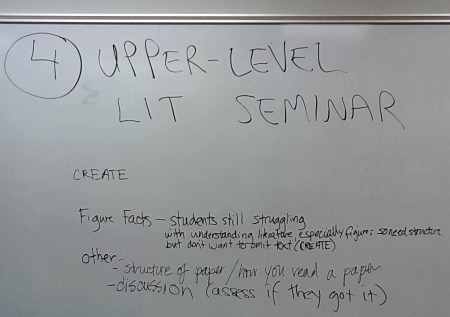 4 UPPER-LEVEL
LIT SEMINAR
CREATE
Figure Facts - students still struggling
with understanding literature, especially figures so need structure
but don't want to omit text (CREATE)
other-
- structure of paper/how you read a paper
- discussion (assess if they got it)